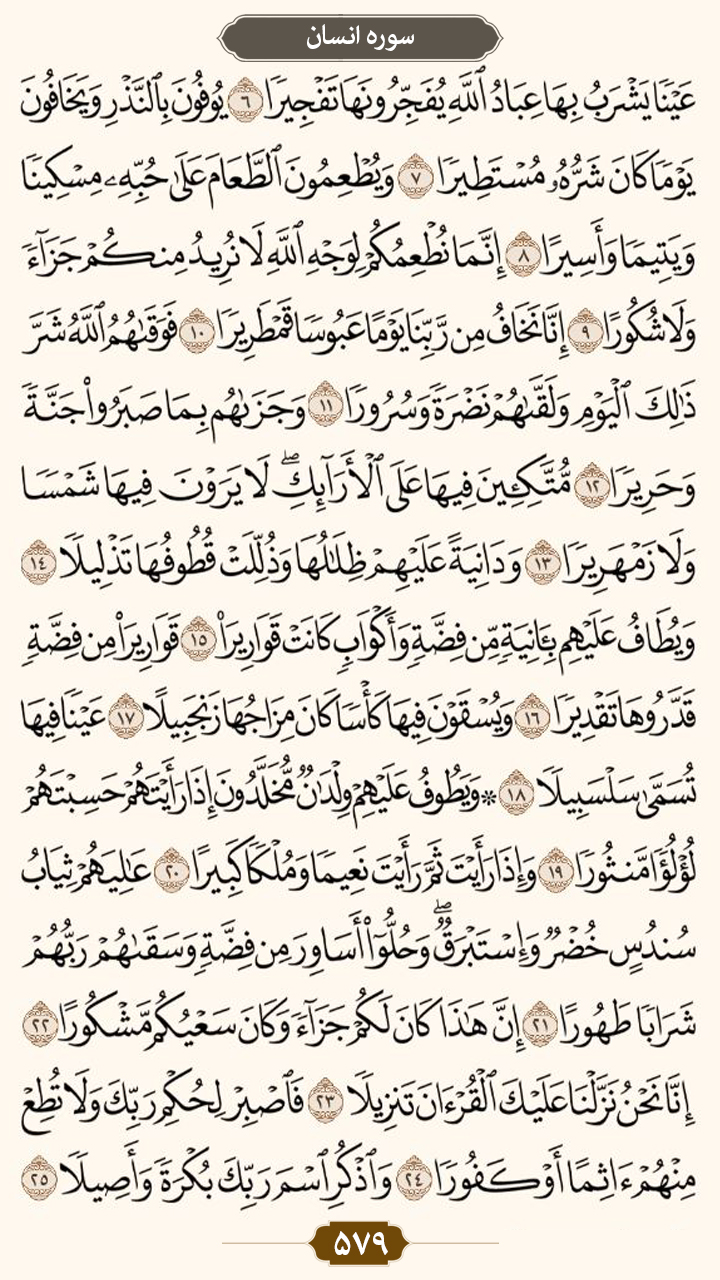 سوره انسان
عَيْنًا يَشْرَبُ بِهَا عِبَادُ ٱللَّهِ يُفَجِّرُونَهَا تَفْجِيرًا ٦ يُوفُونَ بِٱلنَّذْرِ وَيَخَافُونَ
يَوْمًا كَانَ شَرُّهُۥ مُسْتَطِيرًا ٧ وَيُطْعِمُونَ ٱلطَّعَامَ عَلَىٰ حُبِّهِۦ مِسْكِينًا
وَيَتِيمًا وَأَسِيرًا ٨ إِنَّمَا نُطْعِمُكُمْ لِوَجْهِ ٱللَّهِ لَا نُرِيدُ مِنكُمْ جَزَآءً
وَلَا شُكُورًا ٩ إِنَّا نَخَافُ مِن رَّبِّنَا يَوْمًا عَبُوسًا قَمْطَرِيرًا ١٠ فَوَقَىٰهُمُ ٱللَّهُ شَرَّ
ذَٰلِكَ ٱلْيَوْمِ وَلَقَّىٰهُمْ نَضْرَةً وَسُرُورًا ١١ وَجَزَىٰهُم بِمَا صَبَرُوا۟ جَنَّةً
وَحَرِيرًا ١٢ مُّتَّكِـِٔينَ فِيهَا عَلَى ٱلْأَرَآئِكِ ۖ لَا يَرَوْنَ فِيهَا شَمْسًا
وَلَا زَمْهَرِيرًا ١٣ وَدَانِيَةً عَلَيْهِمْ ظِلَٰلُهَا وَذُلِّلَتْ قُطُوفُهَا تَذْلِيلًا ١٤
وَيُطَافُ عَلَيْهِم بِـَٔانِيَةٍ مِّن فِضَّةٍ وَأَكْوَابٍ كَانَتْ قَوَارِيرَا۠ ١٥ قَوَارِيرَا۟ مِن فِضَّةٍ
قَدَّرُوهَا تَقْدِيرًا ١٦ وَيُسْقَوْنَ فِيهَا كَأْسًا كَانَ مِزَاجُهَا زَنجَبِيلًا ١٧ عَيْنًا فِيهَا
تُسَمَّىٰ سَلْسَبِيلًا ١٨ * وَيَطُوفُ عَلَيْهِمْ وِلْدَٰنٌ مُّخَلَّدُونَ إِذَا رَأَيْتَهُمْ حَسِبْتَهُمْ
لُؤْلُؤًا مَّنثُورًا ١٩ وَإِذَا رَأَيْتَ ثَمَّ رَأَيْتَ نَعِيمًا وَمُلْكًا كَبِيرًا ٢٠ عَٰلِيَهُمْ ثِيَابُ
سُندُسٍ خُضْرٌ وَإِسْتَبْرَقٌ ۖ وَحُلُّوٓا۟ أَسَاوِرَ مِن فِضَّةٍ وَسَقَىٰهُمْ رَبُّهُمْ
شَرَابًا طَهُورًا ٢١ إِنَّ هَٰذَا كَانَ لَكُمْ جَزَآءً وَكَانَ سَعْيُكُم مَّشْكُورًا ٢٢
إِنَّا نَحْنُ نَزَّلْنَا عَلَيْكَ ٱلْقُرْءَانَ تَنزِيلًا ٢٣ فَٱصْبِرْ لِحُكْمِ رَبِّكَ وَلَا تُطِعْ
مِنْهُمْ ءَاثِمًا أَوْ كَفُورًا ٢٤ وَٱذْكُرِ ٱسْمَ رَبِّكَ بُكْرَةً وَأَصِيلًا ٢٥
۵۷۹